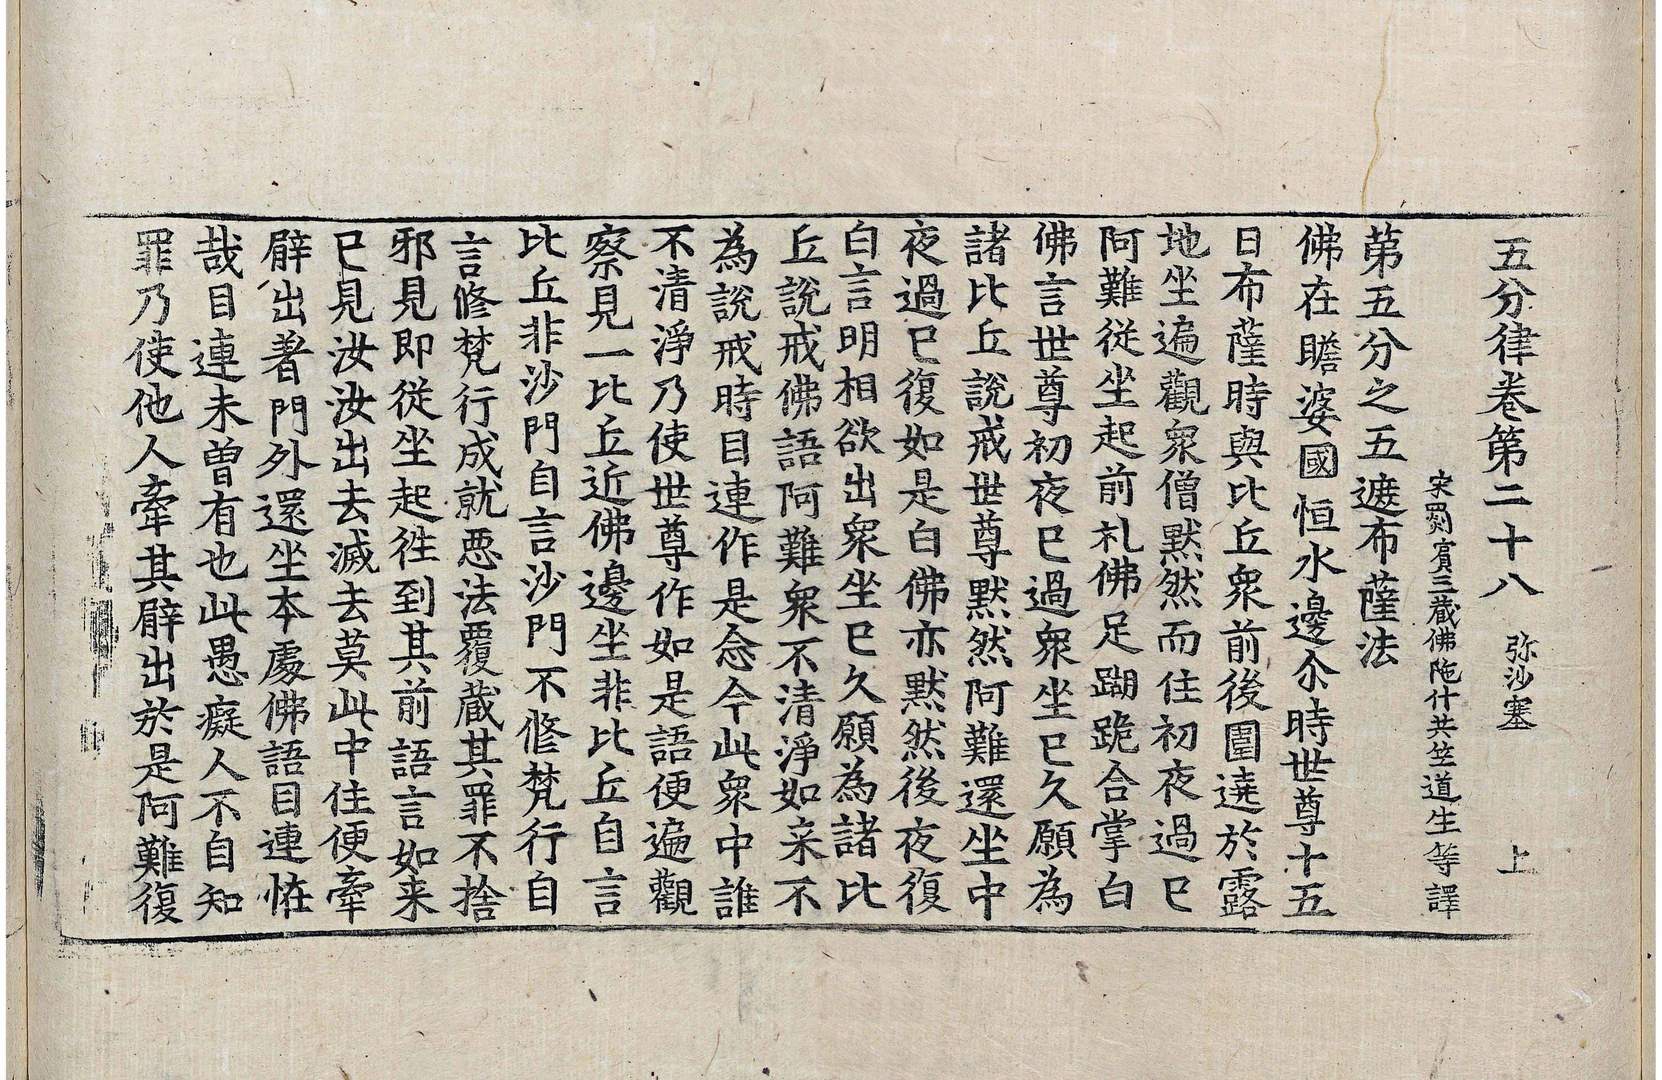 五分律卷第二十八　弥沙塞　上
宋罽賓三藏佛陁什共竺道生等譯
第五分之五遮布薩法
佛在瞻婆國恒水邊尒時世尊十五
日布薩時與比丘衆前後圍遶於露
地坐遍觀衆僧默然而住初夜過已
阿難從坐起前礼佛足踟跪合掌白
佛言世尊初夜已過衆坐已久願為
諸比丘說戒世尊默然阿難還坐中
夜過已復如是白佛亦默然後夜復
白言明相欲出衆坐已久願為諸比
丘說戒佛語阿難衆不清淨如来不
為說戒時目連作是念今此衆中誰
不清淨乃使世尊作如是語便遍觀
察見一比丘近佛邊坐非比丘自言
比丘非沙門自言沙門不修梵行自
言修梵行成就惡法覆藏其罪不捨
邪見即從坐起徃到其前語言如来
已見汝汝出去滅去莫此中住便牽
臂出著門外還坐本處佛語目連恠
哉目連未曾有也此愚癡人不自知
罪乃使他人牽其臂出於是阿難復